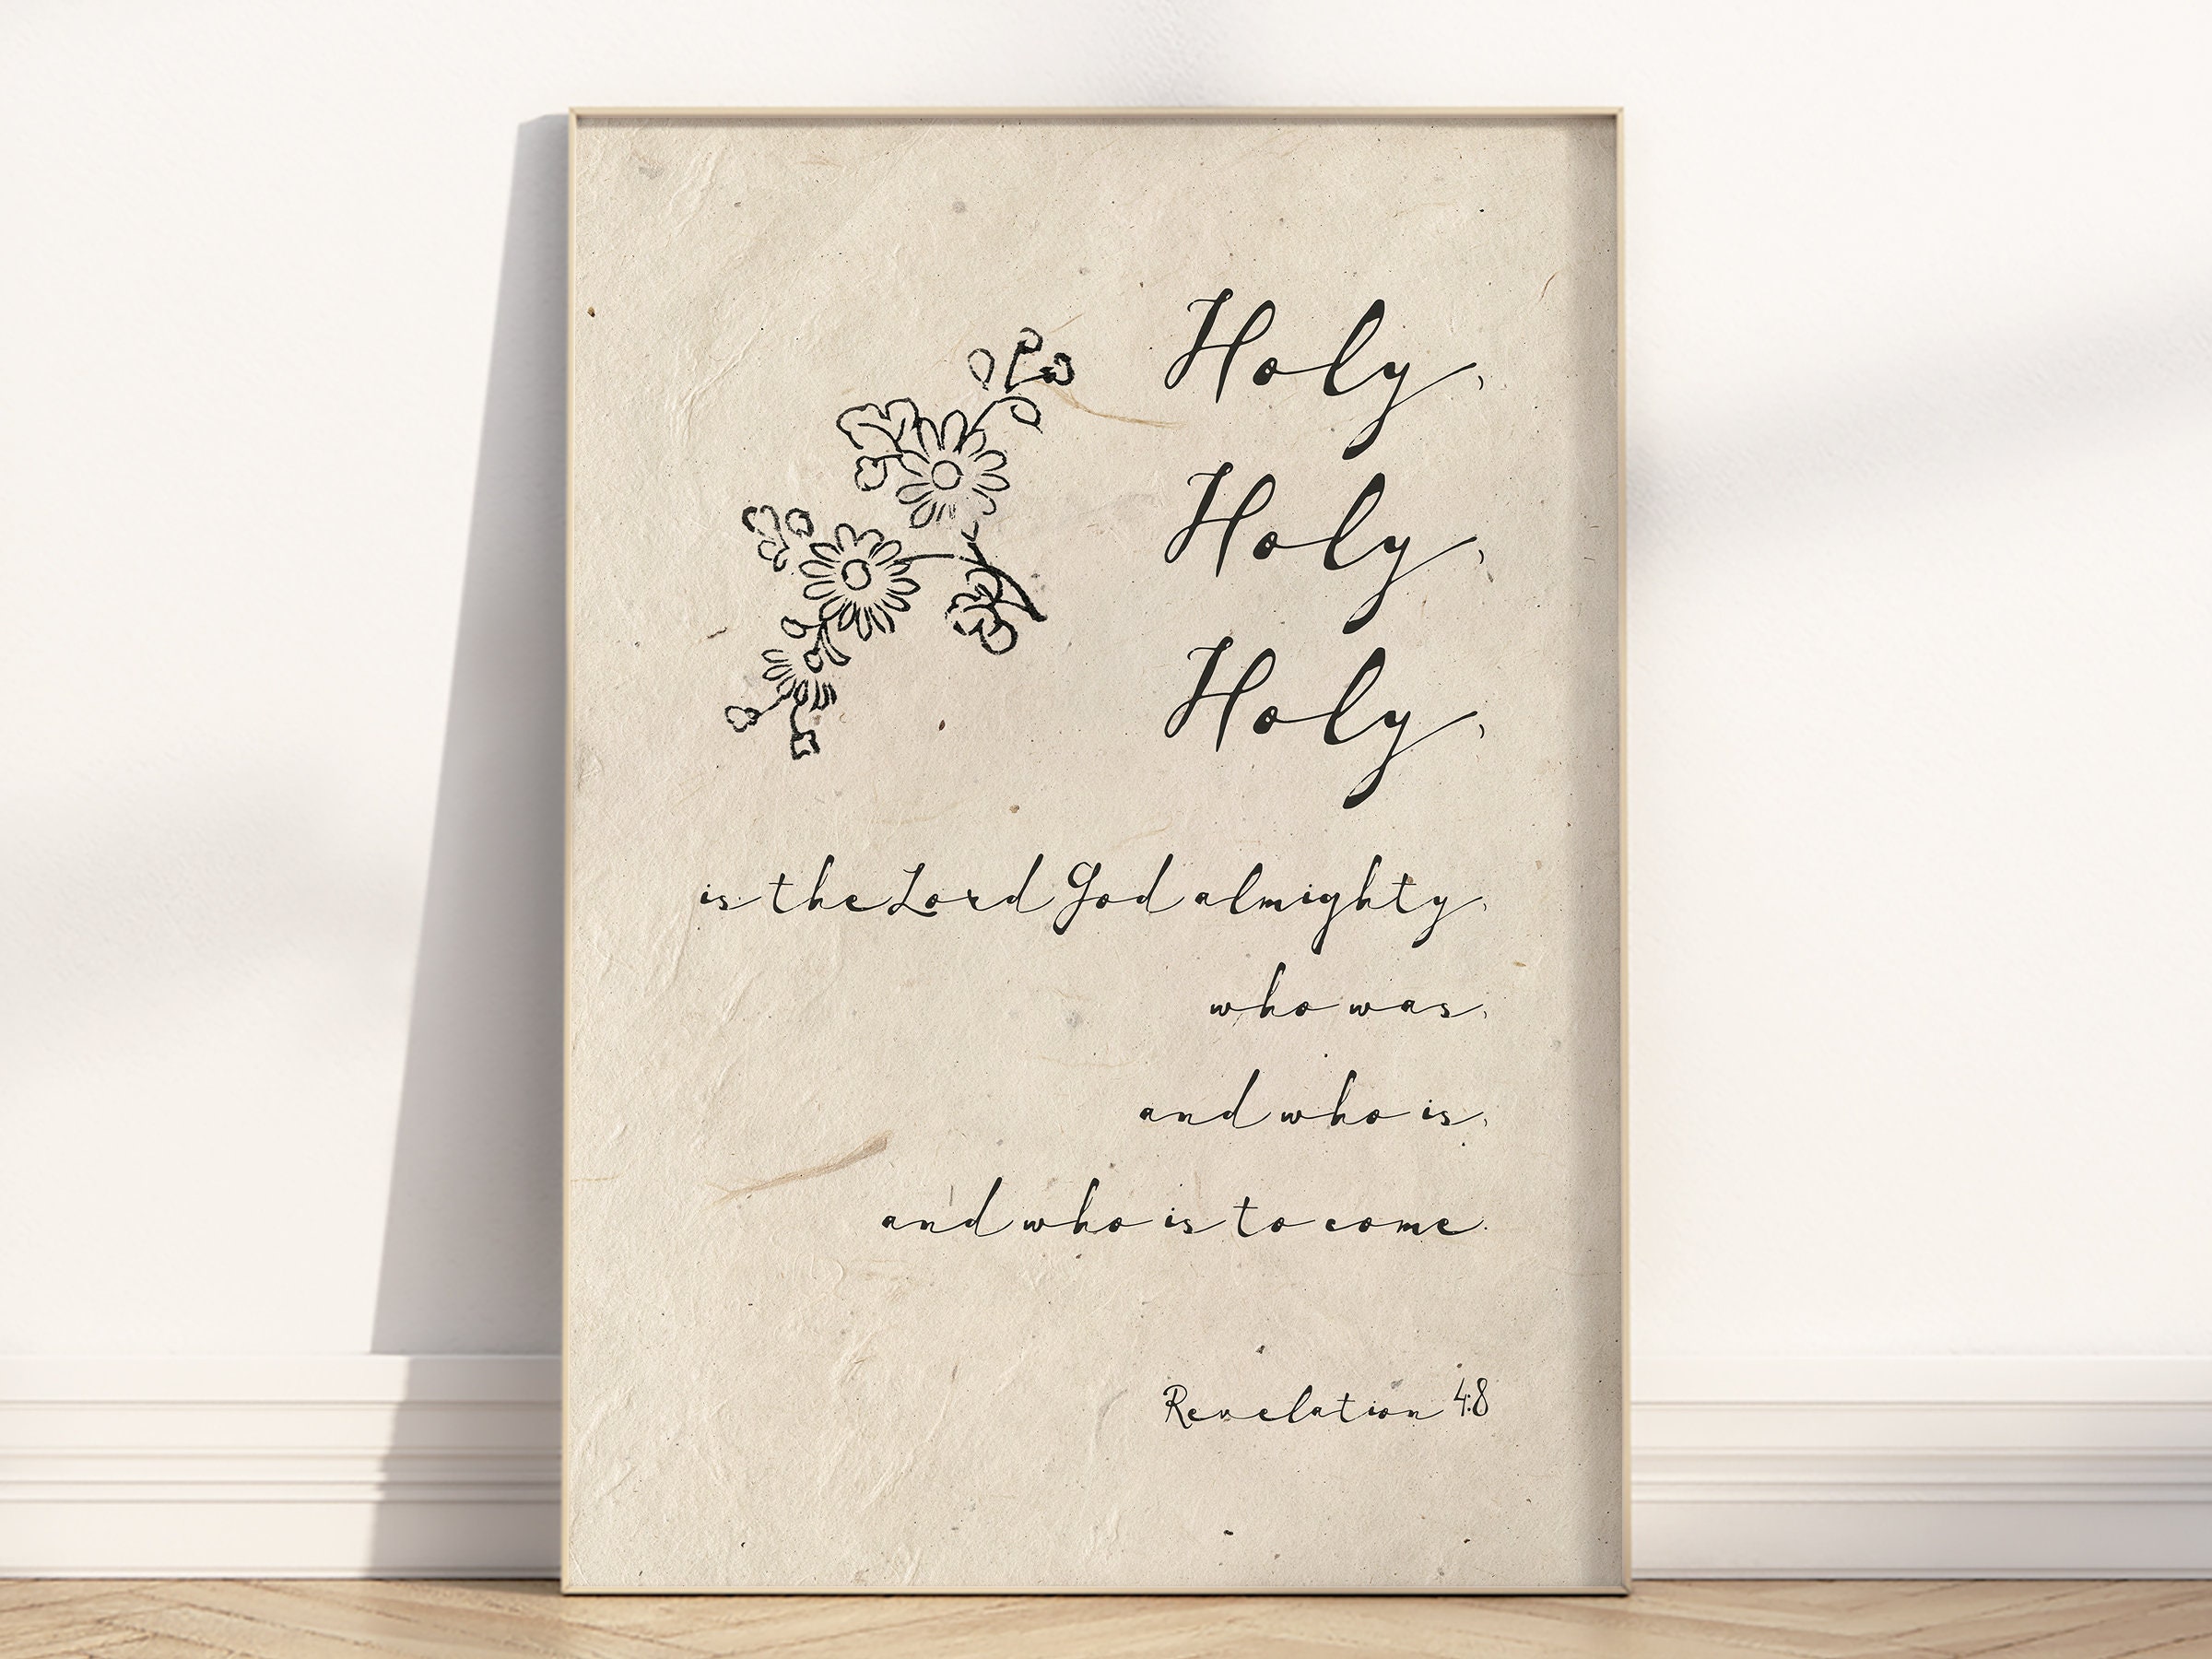 Holy,
Holy,
Holy,
is the Lord God almighty,
who was,
and who is,
and who is to come.
Revelation 4:8